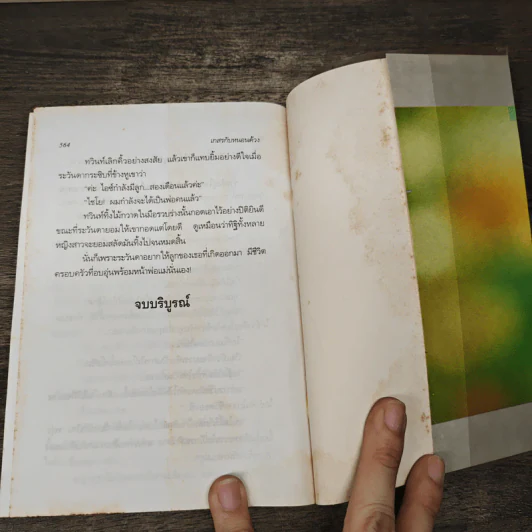 364 เกสรกับหนอนด้วง
ทวินท์เลิกคิ้วอย่างสงสัย แล้วเขาก็แทบยิ้มอย่างดีใจเมื่อ
ระวันดากระซิบที่ข้างหูเขาว่า
"ค่ะ ไอซ์กำลังมีลูก...สองเดือนแล้วค่ะ"
"ไชโย! ผมกำลังจะได้เป็นพ่อคนแล้ว"
ทวินท์ทิ้งไม้กวาดในมือรวบร่างนั้นกอดเอาไว้อย่างปิติยินดี
ขณะที่ระวันดายอมให้เขากอดแต่โดยดี ดูเหมือนว่าทิฐิทั้งหลาย
หญิงสาวจะยอมสลัดมันทิ้งไปจนหมดสิ้น
นั่นก็เพราะระวันดาอยากให้ลูกของเธอที่เกิดออกมา มีชีวิต
ครอบครัวที่อบอุ่นพร้อมหน้าพ่อแม่นั่นเอง!
จบบริบูรณ์